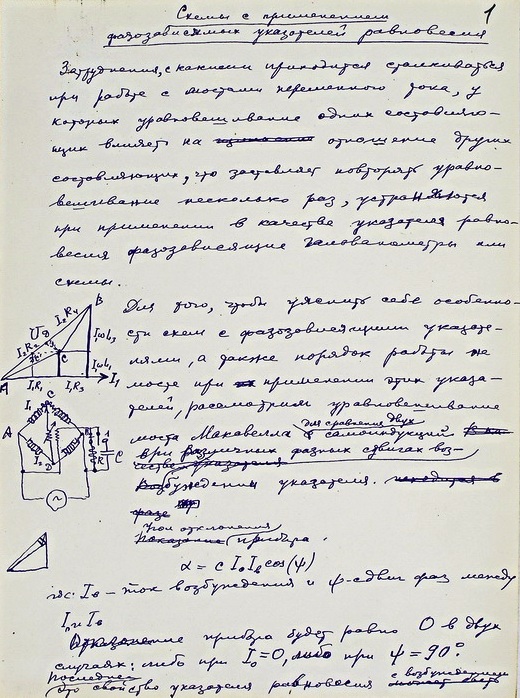 1
Схемы с применением
фазозависимых указателей равновесия
Затруднения, с какими приходится сталкиваться
при работе с мостами переменного тока, у
которых уравновешивание одних составляю-
щих влияет на отношение других
составляющих, что заставляет повторять уравно-
вешивание несколько раз, устраняются
при применении в качестве указателя равно-
весия фазозависящие гальванометры или
схемы.
Для того, чтобы уяснить себе особенно-
сти схем с фазозависящими указате-
лями, а также порядок работы на
мосте при применении этих указа-
телей, рассмотрим уравновешивание
для сравнения двух
моста Максвелла самоиндукций
при различных разных сдвигах воз-
буждения указателя.
фазе
Угол отклонения
Показание прибора.
α = c I₀ Iв cos(ψ)
где: Iв – ток возбуждения и ψ-сдвиг фаз между
I₀ и Iв
прибора будет равно 0 в двух
случаях: либо при I₀=0, либо при ψ=90°.
Последнее с возбуждением
Это свойство указателя равновесия
B
U
I₂R₄
I₂R₂
D
C
IωL₃
IωL₁
A
I₁R₁
I₁R₃
I₁
C
I₁
A
B
I₂
D
R
C
~